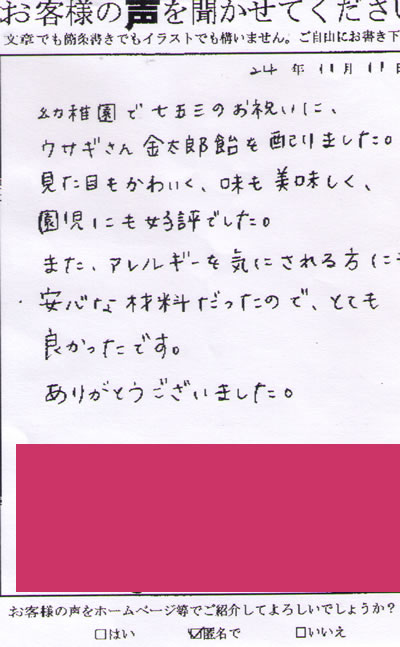 お客様の声を聞かせてください
文章でも箇条書きでもイラストでも構いません。ご自由にお書き下
24年11月11日
幼稚園で七五三のお祝いに、
ウサギさん金太郎飴を配りました。
見た目もかわいく、味も美味しく、
園児にも好評でした。
また、アレルギーを気にされる方に
安心な材料だったので、とても
良かったです。
ありがとうございました。
お客様の声をホームページ等でご紹介してよろしいでしょうか?
□はい ☑匿名で □いいえ